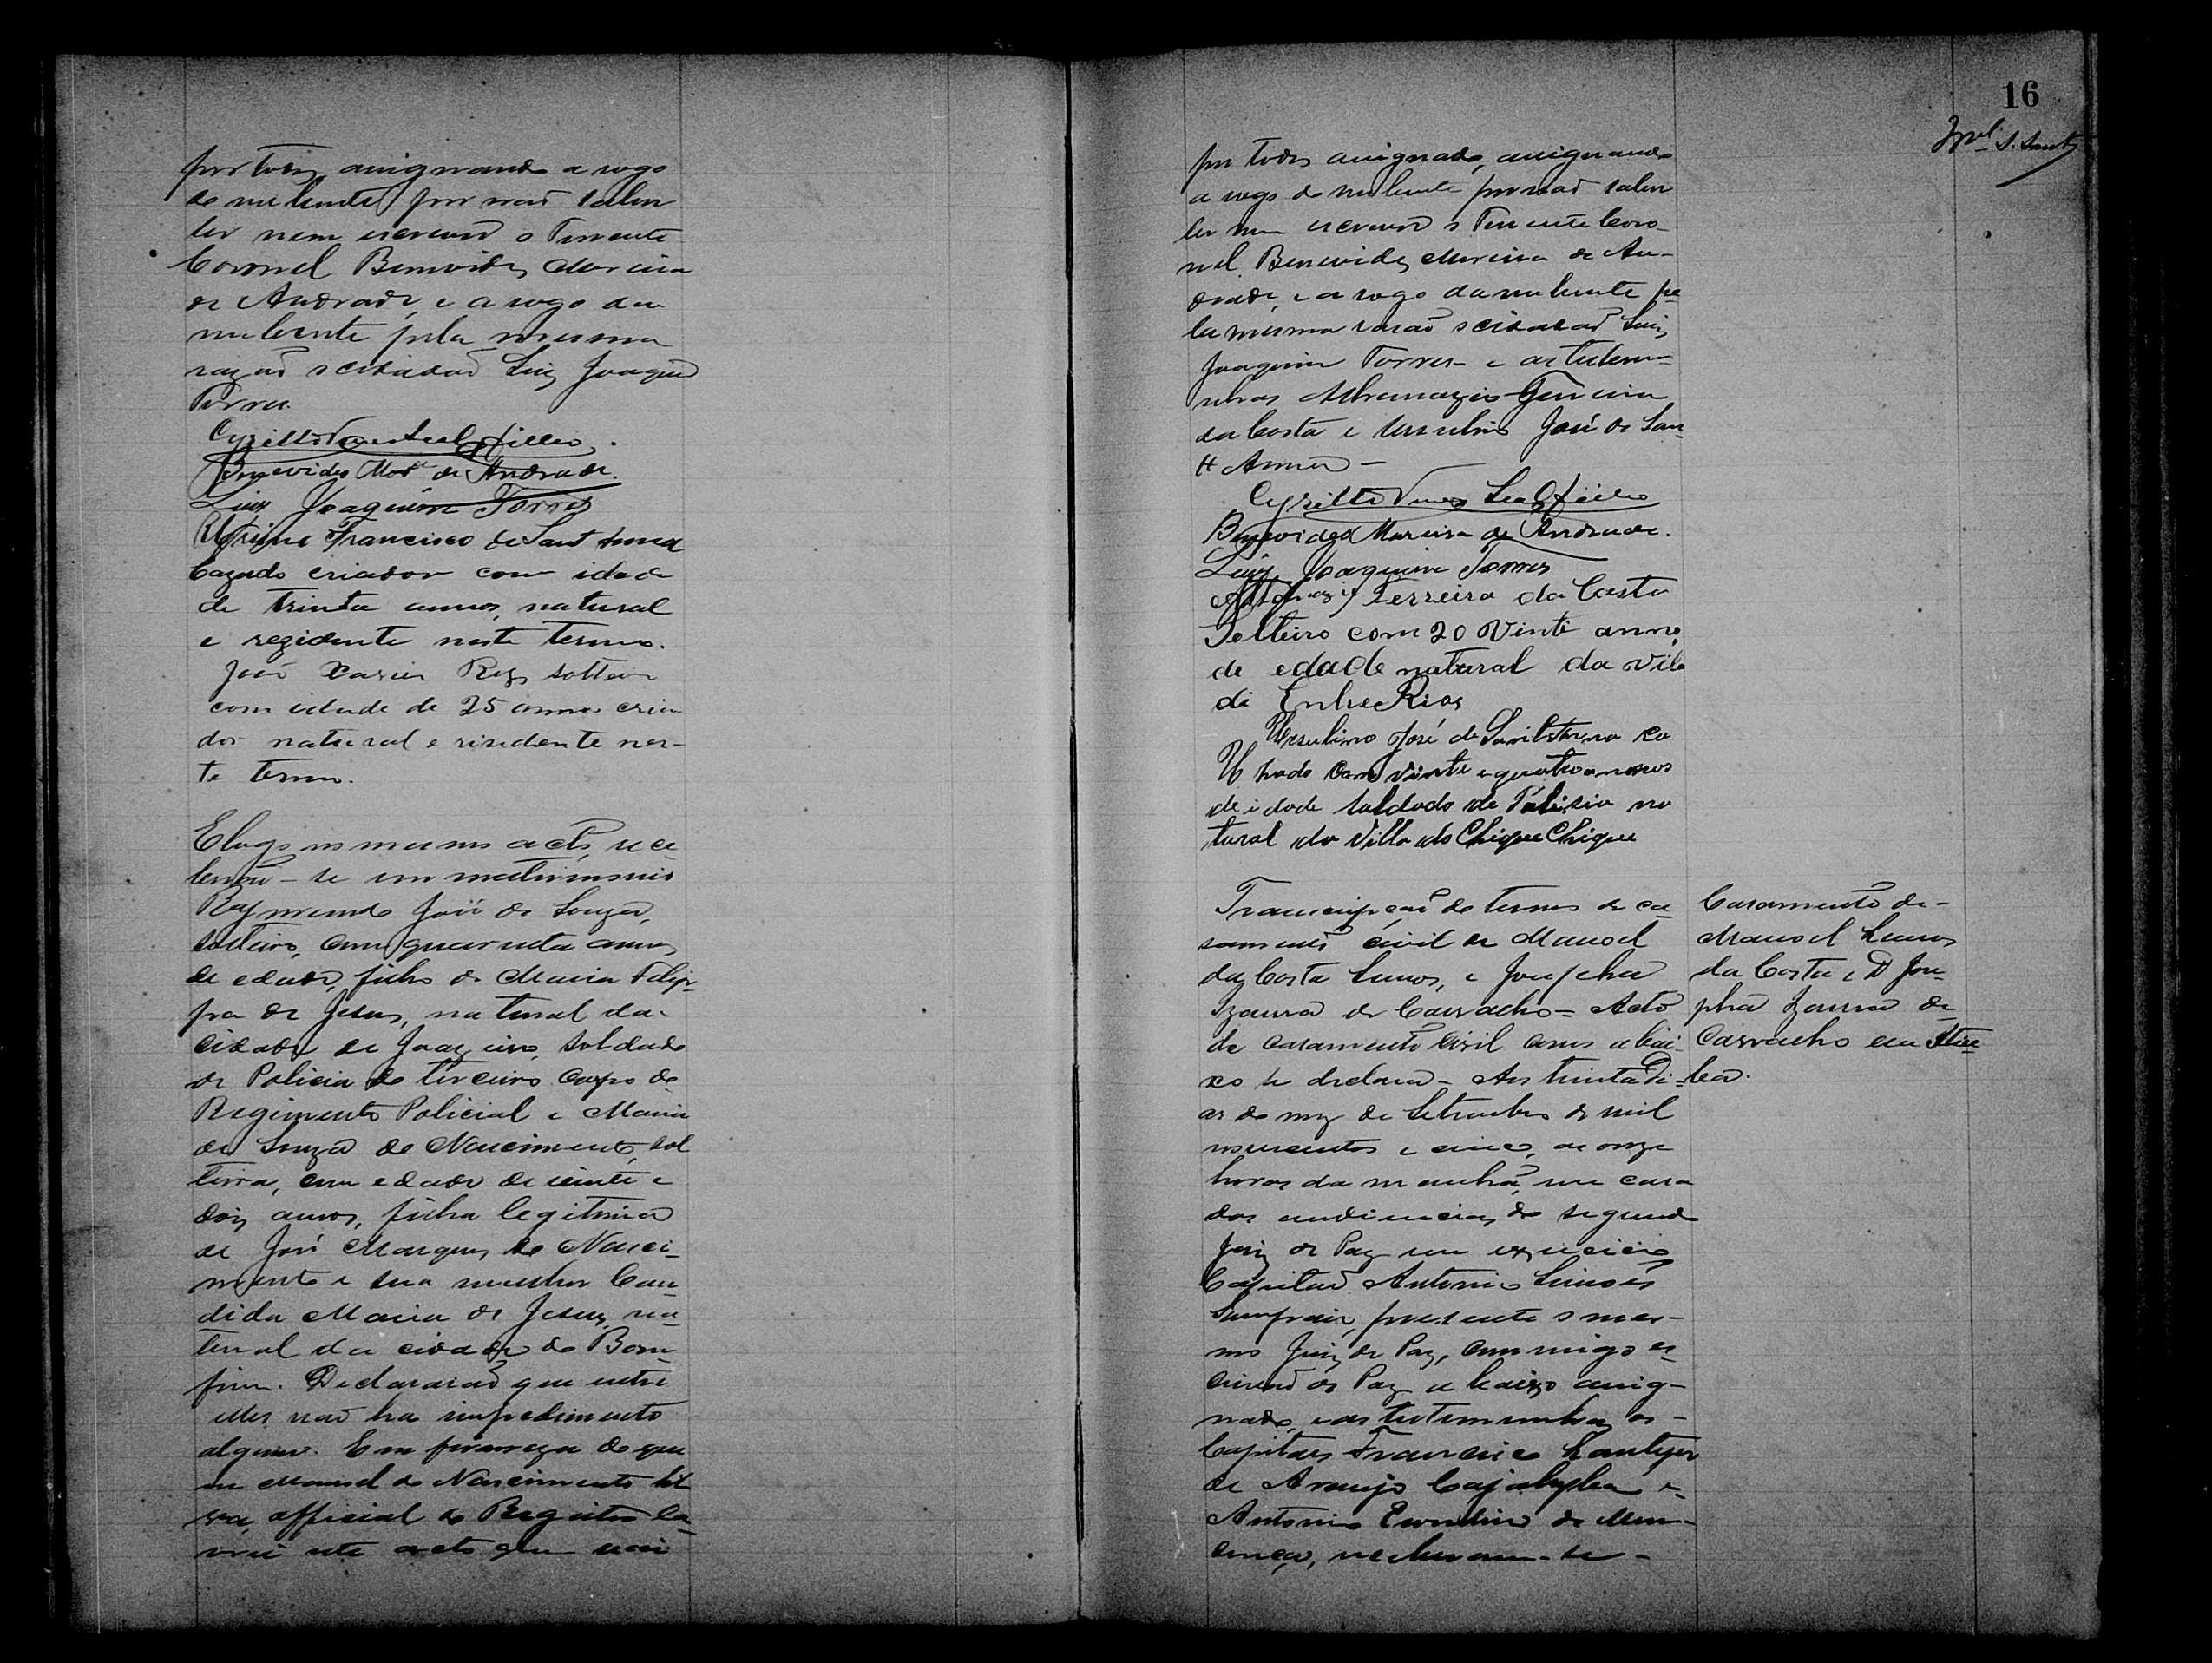 por todos, assignando a rogo
do nubente por não saber
ler nem escrever o Tenente
Coronel Benevides Moreira
de Andrade, e a rogo da
nubente pela mesma
razão o cidadão Luiz Joaquim
Torres.
Cyrillo Leal Filho
Benevides Mor.ª de Andrade.
Luiz Joaquim Torres
Francisco de Sant Anna
Cazado criador com idade
de trinta annos, natural
e rezidente neste termo.
José Xavier Reis solteiro
com idade de 25 annos cria
dor natural e risidente nes-
te termo.
E logo no mesmo acto, rece
berão-se em matrimonio
Raymundo José de Souza,
solteiro, com quarenta annos
de edade, filho de Maria Felip-
pa de Jesus, natural da
cidade de Joazeiro, soldado
de Policia do terceiro Corpo do
Regimento Policial e Maria
de Souza do Nascimento, sol
teira, com edade de vinte e
dois annos, filha legitima
de José Marques do Nasci-
mento e sua mulher Can
dida Maria de Jesus, na
tural da cidade do Bom
fim. Declararão que entre
elles não ha impedimento
algum. Em firmeza do que
eu Manoel do Nascimento
official do Registro la-
vrei este acto que vai
16
por todos assignado, assignando
a rogo do nubente por não saber
ler nem escrever o Tenente Coro-
nel Benevides Moreira de An-
drade, e a rogo da nubente pe
la mesma rasão o cidadão Luiz
Joaquim Torres e as testemu-
nhas Ferreira
da Costa e Ursulino José de San
tt Anna -
Cyrillo Leal Filho
Benevides Moreira de Andrade.
Luiz Joaquim Torres
Ferreira da Costa
Solteiro com 20 Vinti annos
de edade natural da Vila
di Entre Rios
Ursulino José de Santanna ca
zado com vinte e quatro annos
de idade soldado de Policia na
tural da Villa do Chique Chique
Transcripção do termo de ca
samento civil de Manoel
da Costa Lemos, e Josepha
Izaura de Carvalho = Acto
de casamento civil como abai-
xo se declara - Aos trinta di-
as do mez de Setembro de mil
novecentos e cinco, as onze
horas da manhã, em casa
das audiencias do segundo
Juiz de Paz em exercicio
Capitão Antonio Simões
Sampaio, presente o mes-
mo Juiz de Paz, commigo es-
crivão de Paz abaixo assig-
nado, e as testemunhas os
Capitães Francisco
de Araujo e
Antonio de Men-
donça, receberam-se -
Casamento de
Manoel Lemos
da Costa e D Jose
pha Izaura de
Carvalho em